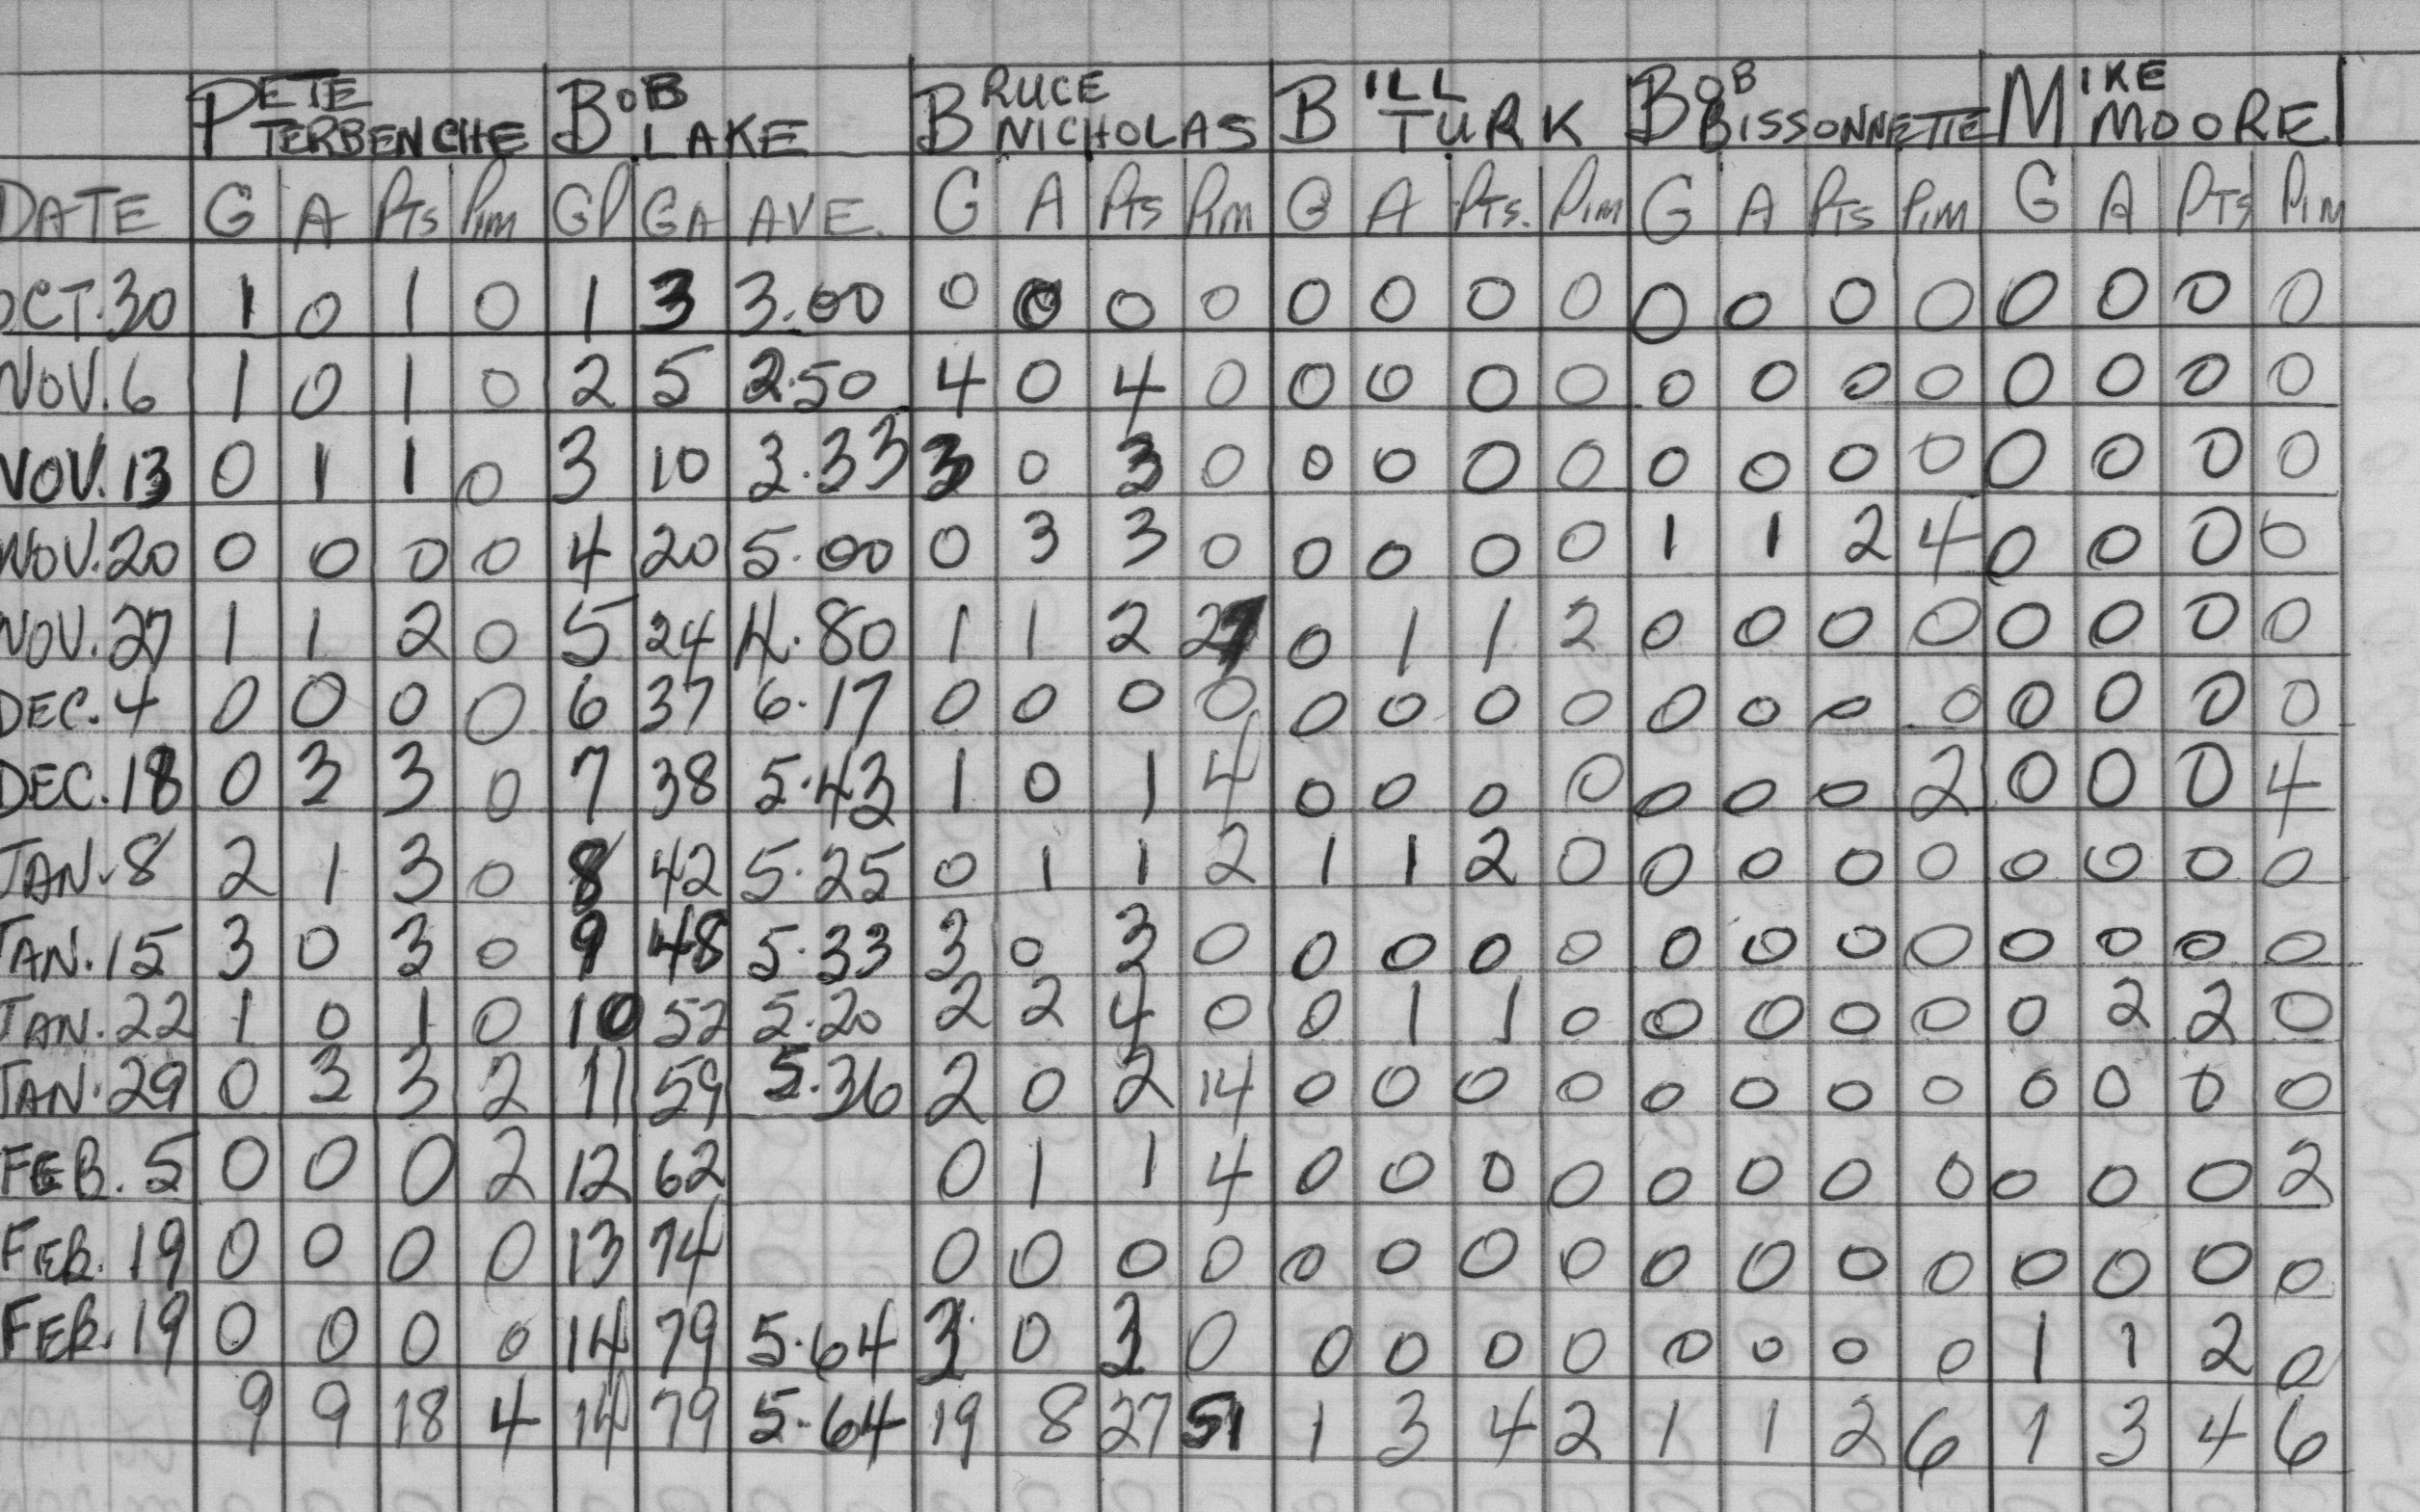 PETE TERBENCHE BOB LAKE BRUCE NICHOLAS BILL TURK BOB BISSONNETTE MIKE MOORE
DATE G A PTS PIM GP GA AVE. G A PTS PIM G A PTS. PIM G A PTS PIM G A PTS PIM
OCT. 30 1 0 1 0 1 3 3.00 0 0 0 0 0 0 0 0 0 0 0 0 0 0 0 0
NOV. 6 1 0 1 0 2 5 2.50 4 0 4 0 0 0 0 0 0 0 0 0 0 0 0 0
NOV. 13 0 1 1 0 3 10 3.33 3 0 3 0 0 0 0 0 0 0 0 0 0 0 0 0
NOV. 20 0 0 0 0 4 20 5.00 0 3 3 0 0 0 0 0 1 1 2 4 0 0 0 0
NOV. 27 1 1 2 0 5 24 4.80 1 1 2 27 0 1 1 2 0 0 0 0 0 0 0 0
DEC. 4 0 0 0 0 6 37 6.17 0 0 0 0 0 0 0 0 0 0 0 0 0 0 0 0
DEC. 18 0 3 3 0 7 38 5.43 1 0 1 4 0 0 0 0 0 0 0 2 0 0 0 4
JAN. 8 2 1 3 0 8 42 5.25 0 1 1 2 1 1 2 0 0 0 0 0 0 0 0 0
JAN. 15 3 0 3 0 9 48 5.33 3 0 3 0 0 0 0 0 0 0 0 0 0 0 0 0
JAN. 22 1 0 1 0 10 52 5.20 2 2 4 0 0 1 1 0 0 0 0 0 0 2 2 0
JAN. 29 0 3 3 2 11 59 5.36 2 0 2 14 0 0 0 0 0 0 0 0 0 0 0 0
FEB. 5 0 0 0 2 12 62 0 1 1 4 0 0 0 0 0 0 0 0 0 0 0 2
FEB. 19 0 0 0 0 13 74 0 0 0 0 0 0 0 0 0 0 0 0 0 0 0 0
FEB. 19 0 0 0 0 14 79 5.64 3 0 3 0 0 0 0 0 0 0 0 0 1 1 2 0
9 9 18 4 14 79 5.64 19 8 27 51 1 3 4 2 1 1 2 6 1 3 4 6